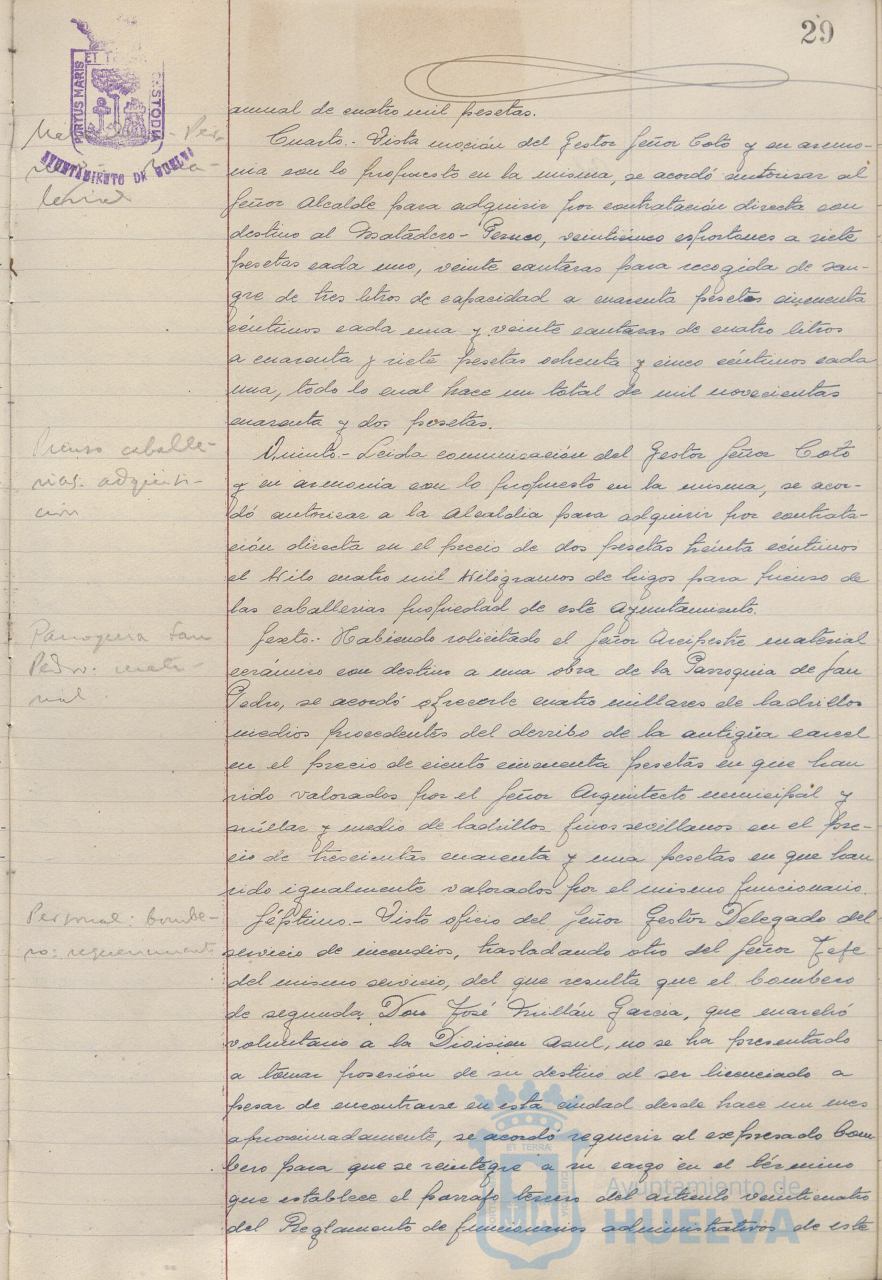 29
PORTUS MARIS
ET TERRÆ
CUSTODIA
AYUNTAMIENTO DE HUELVA
anual de cuatro mil pesetas.
Cuarto.- Vista moción del Gestor Señor Cotó y en armo-
nia con lo propuesto en la misma, se acordó autorizar al
Señor Alcalde para adquirir por contratación directa con
destino al Matadero-Perneo, veinticinco esportones a siete
pesetas cada uno, veinte cantaras para recogida de san-
gre de tres litros de capacidad a cuarenta pesetas cincuenta
céntimos cada una y veinte cantaras de cuatro litros
a cuarenta y siete pesetas ochenta y cinco céntimos cada
una, todo lo cual hace un total de mil novecientas
cuarenta y dos pesetas.
Pienso caballe-
rias. adquisi-
ción
Quinto.- Leida comunicación del Gestor Señor Cotó
y en armonia con lo propuesto en la misma, se acor-
dó autorizar a la Alcaldia para adquirir por contrata-
ción directa en el precio de dos pesetas treinta céntimos
el Kilo cuatro mil Kilogramos de higos para pienso de
las caballerias propiedad de este Ayuntamiento.
Parroquia San
Pedro. mate-
rial
Sexto.- Habiendo solicitado el Señor Arcipestre material
cerámico con destino a una obra de la Parroquia de San
Pedro, se acordó ofrecerle cuatro millares de ladrillos
medios procedentes del derribo de la antigüa carcel
en el precio de ciento cincuenta pesetas en que han
sido valorados por el Señor Arquitecto municipal y
millar y medio de ladrillos finos sevillanos en el pre-
cio de trescientas cuarenta y una pesetas en que han
sido igualmente valorados por el mismo funcionario.
Personal: bombe-
ro: requerimiento
Séptimo.- Visto oficio del Señor Gestor Delegado del
servicio de incendios, trasladando otro del Señor Jefe
del mismo servicio, del que resulta que el bombero
de segunda Don José Millán Garcia, que marchó
voluntario a la Division Azul, no se ha presentado
a tomar posesión de su destino al ser licenciado a
pesar de encontrarse en esta ciudad desde hace un mes
aproximadamente, se acordó requerir al expresado bom
bero para que se reintegre a su cargo en el término
que establece el parrafo tercero del articulo veinticuatro
del Reglamento de funcionarios administrativos de este
ET TERRÆ
Ayuntamiento de
HUELVA